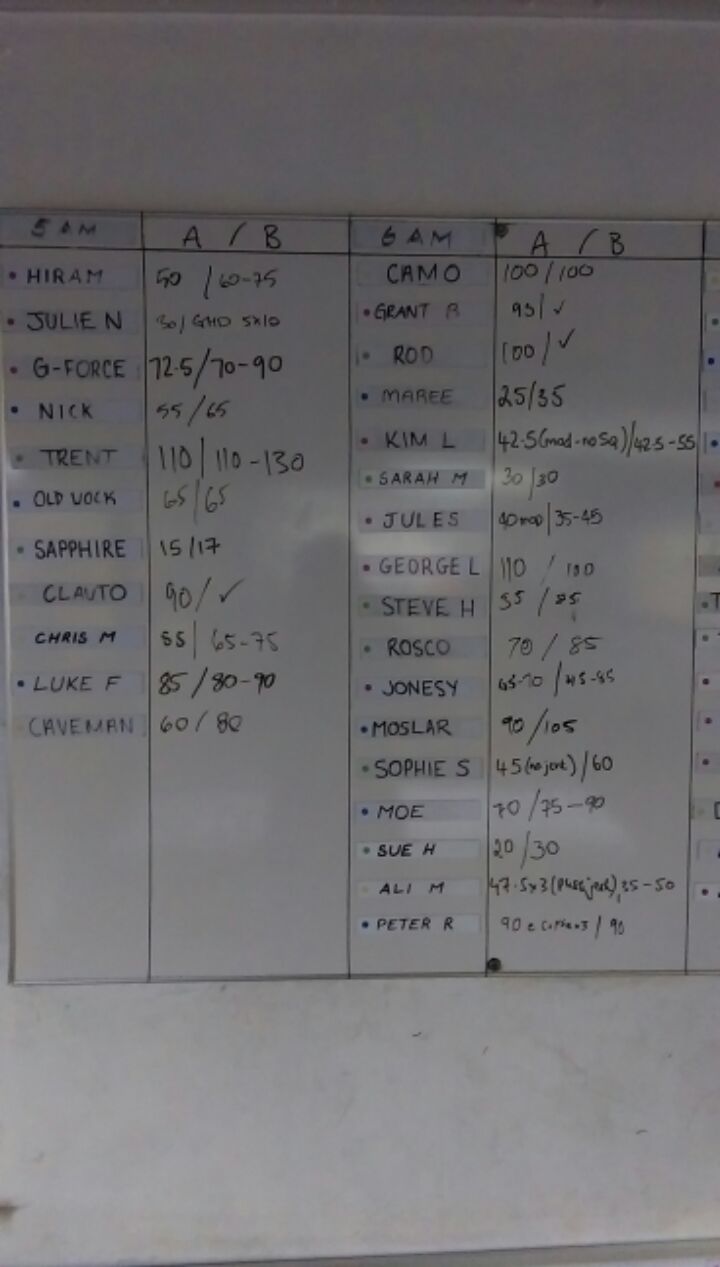 5 AM A / B
HIRAM 50 / 60-75
JULIE N 30 / GHD 5x10
G-FORCE 72.5/70-90
NICK 55 / 65
TRENT 110 / 110-130
OLD 65/65
SAPPHIRE 15/17
CLAUTO 90/ ✓
CHRIS M 55 / 65-75
LUKE F 85/80-90
CAVEMAN 60/80
6 AM A / B
CAMO 100/100
GRANT B 95/ ✓
ROD 100/ ✓
MAREE 25/35
KIM L 42.5(mod-no Sq)/42.5-55
SARAH M 30/30
JULES 40 mod/35-45
GEORGE L 110 / 100
STEVE H 55 /
ROSCO 70 / 85
JONESY 65-70 /
MOSLAR 90/105
SOPHIE S 45(no jerk)/60
MOE 70/75-90
SUE H 20/30
ALI M 47.5x3 35-50
PETER R 90 / 90